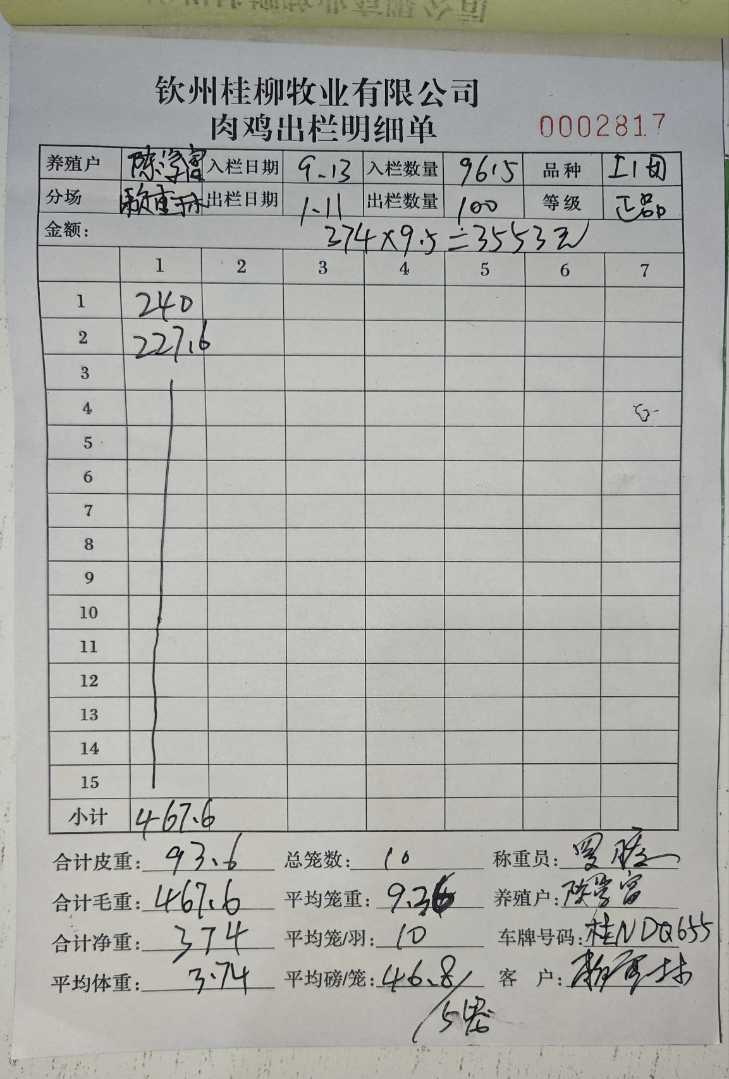 钦州桂柳牧业有限公司
肉鸡出栏明细单 0002817
养殖户 陈学富 入栏日期 9.13 入栏数量 9615 品种
分场 出栏日期 1.11 出栏数量 100 等级 正品
金额: 374×9.5=3553元
1 2 3 4 5 6 7
1 240
2 227.6
3
4
5
6
7
8
9
10
11
12
13
14
15
小计 467.6
合计皮重: 93.6 总笼数: 10 称重员:
合计毛重: 467.6 平均笼重: 9.36 养殖户: 陈学富
合计净重: 374 平均笼/羽: 10 车牌号码: 桂NDQ655
平均体重: 3.74 平均磅/笼: 46.8 客 户: